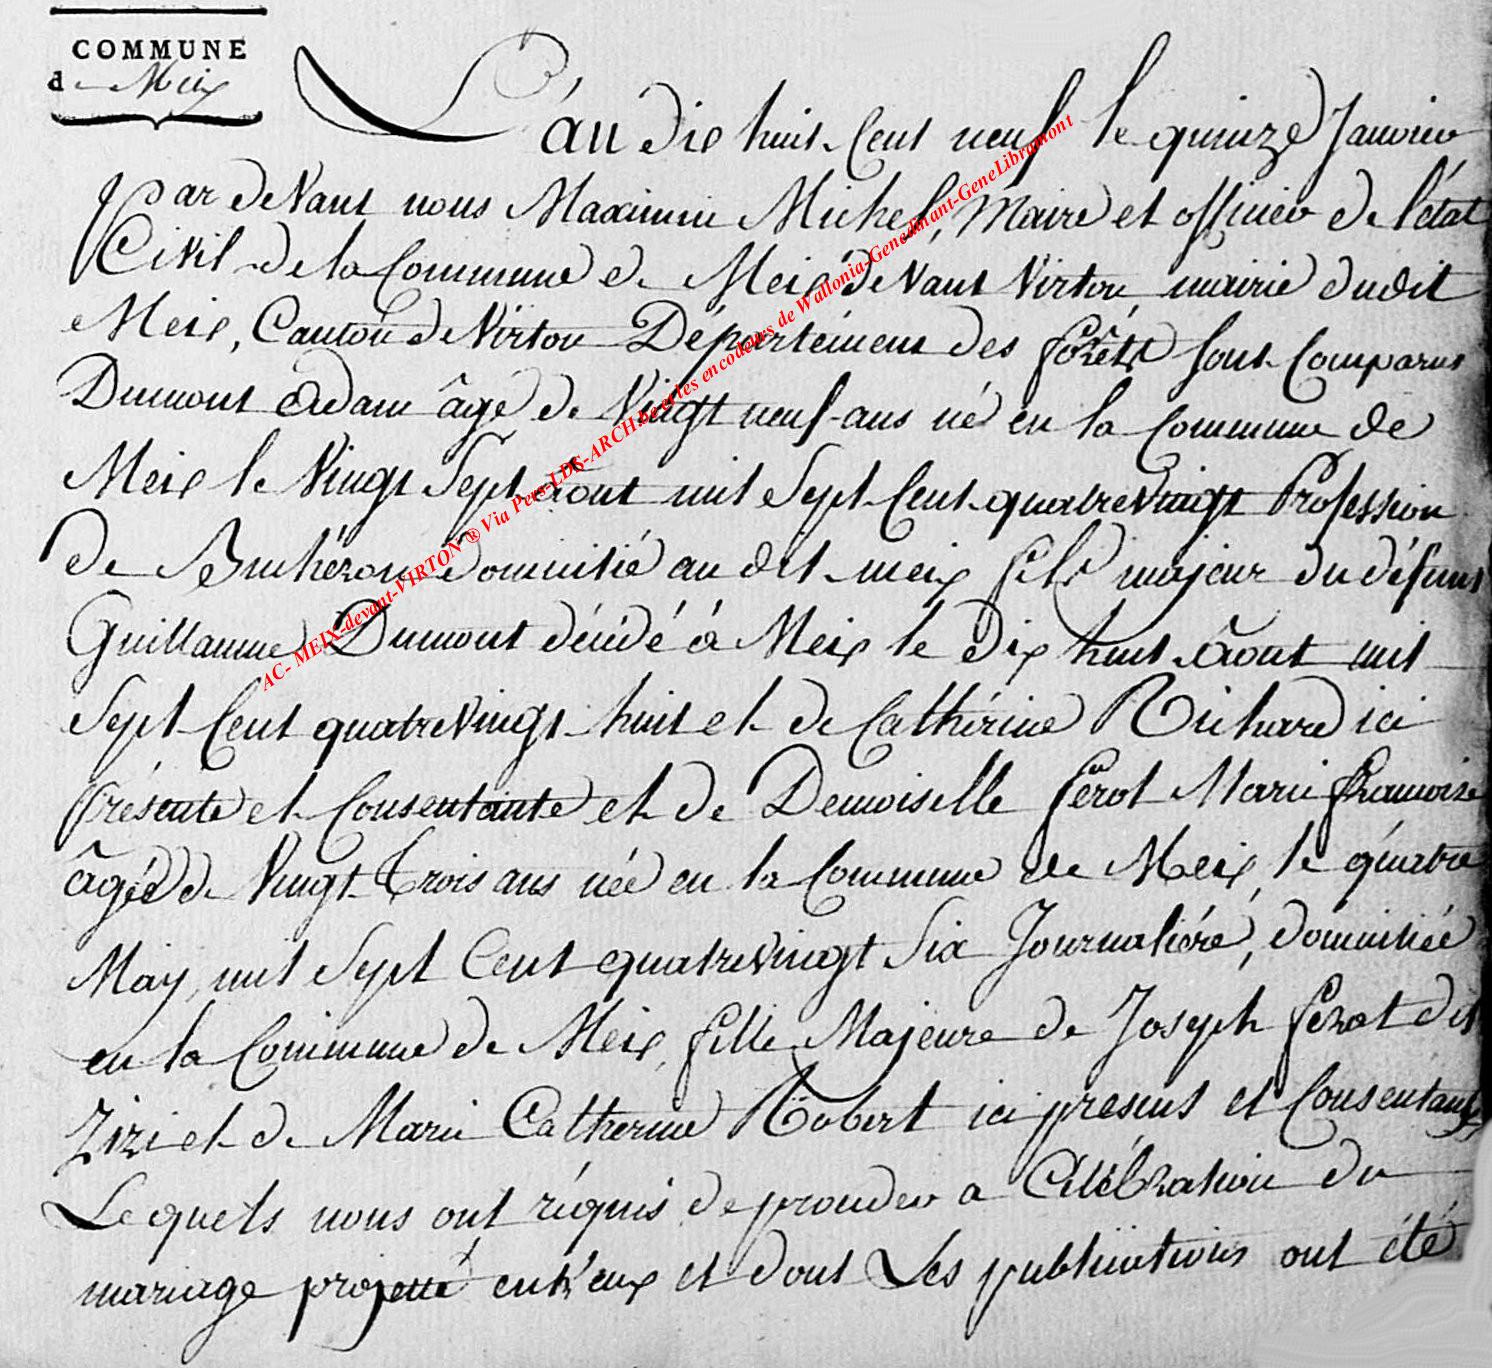 COMMUNE
de Meix
L'an dix huit Cent neuf le quinze Janvier
par deVant nous Maximin Michel, Maire et officier de l'état
CiVil de la Commune de Meix deVant Virton mairie dudit
Meix, Canton de Virton Département des forêts sont Comparus
Dumont Adam âgé de Vingt neuf ans né en la Commune de
Meix le Vingt Sept âout mil Sept Cent quatreVingt Profession
de Buchéron domicilié au dit meix fils majeur du défunt
Guillaume Dumont décédé à Meix le dix huit âout mil
Sept Cent quatreVingt huit et de Cathérine Richard ici
présente et Consentante et de Demoiselle férot Marie françoise
âgée de Vingt Trois ans née en la Commune de Meix, le quatre
May, mil Sept Cent quatreVingt Six Journalière, domiciliée
en la Commune de Meix, fille Majeure de Joseph ferot dit
Zizi et de Marie Catherine Robert ici presens et Consentants,
Lequels nous ont réquis de proceder a Célébration du
mariage projetté entr'eux et dont Les publications ont été
AC- MEIX-devant-VIRTON ® Via Pers-LDS-ARCH.be et les encodeurs de Wallonia-Genedinant-GeneLibramont